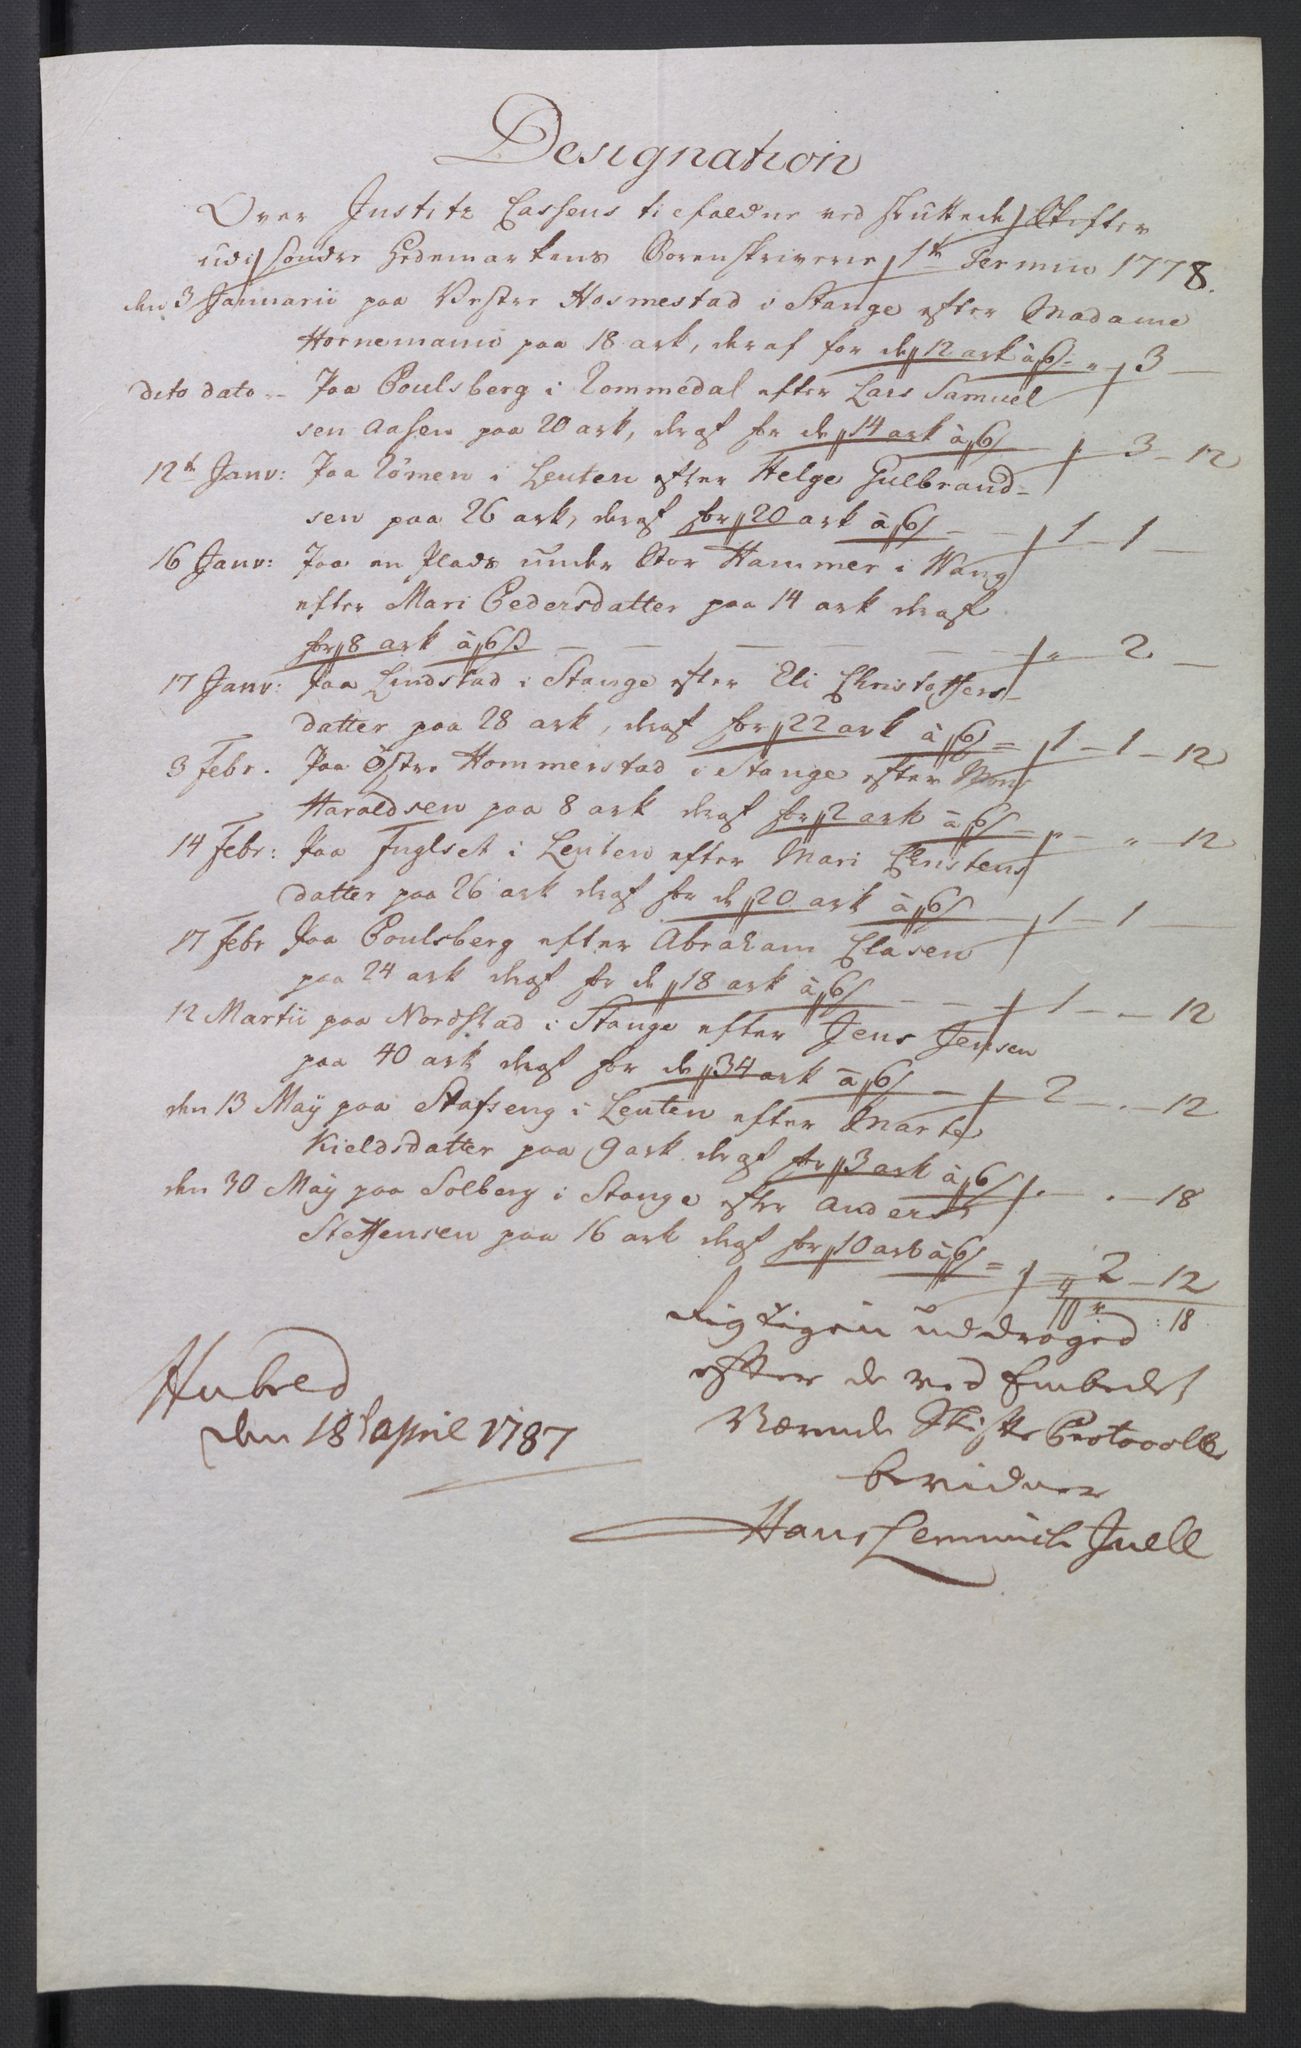 Designation
Over Justitz Cassens tilfaldne ved sluttede Skifter
udi Søndre Hedemarkens Sorenskriverie 1te Termin 1778.
den 3 Januarii paa Vestre Hosmestad i Stange efter Madame
Hornemann paa 18 ark, deraf for de 12 ark à 6 s - " 3 -
dito dato - Paa Poulsberg i Rommedal efter Lars Samuel
sen Aasen paa 20 ark, deraf for de 14 ark à 6 s - " 3 - 12
12te Janv: Paa Rømen i Leuten efter Helge Gulbrand-
sen paa 26 ark, deraf for 20 ark à 6 s - 1 - 1 -
16 Janv: Paa en Plads under Stor Hammer i Wang
efter Mari Pedersdatter paa 14 ark deraf
for 8 ark à 6 s - - - - " 2 -
17 Janv: Paa Lindstad i Stange efter Eli Christoffers-
datter paa 28 ark, deraf for 22 ark à 6 s = 1 - 1 - 12
3 Febr. Paa Østre Hommerstad i Stange efter Mons
Haraldsen paa 8 ark deraf for 2 ark à 6 s - " - " 12
14 Febr: Paa Fuglset i Leuten efter Mari Christens
datter paa 26 ark deraf for de 20 ark à 6 s - 1 - 1 -
17 Febr Paa Poulsberg efter Abraham Clasen
paa 24 ark deraf for de 18 ark à 6 s - - 1 - - 12
12 Martii paa Nordstad i Stange efter Jens Jensen
paa 40 ark deraf for de 34 ark à 6 s - 2 - . - 12
den 13 Maÿ paa Stafseng i Leuten efter Marte
Kieldsdatter paa 9 ark deraf for 3 ark à 6 s . - . - 18
den 30 Maÿ paa Solberg i Stange efter Anders
Steffensen paa 16 ark deraf for 10 ark à 6 s = " = 2 - 12
: 18
Rigtigen uddraged
efter de ved Embedet
Værende Skifte Protocoller
bevidner
Hans Lemmich Juell
Hubred
den 18de April 1787